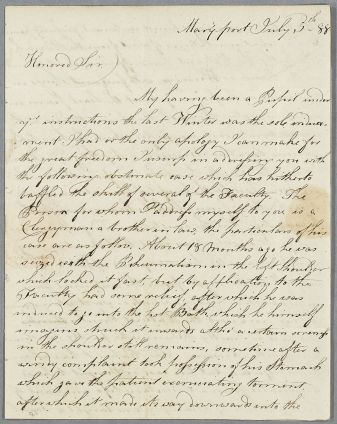 Mary port July 5th 88
Honored Sir
My having been a Pupil under
yr instructions the last Winter was the sole induce
ment I had or the only apology I can make for
the great freedom I usurp in addressing you with
the following obstinate case which has hitherto
baffled the skill of several of the Faculty. The
Person for whom I address myself to you is a
Clergyman a brother in law, the particulars of his
case are as follow. About 18 Months ago he was
seized with the Rheumatism in the left shoulder
which locked it fast, but by application to the
Faculty had some relief, after which he was
induced to go into the hot Bath which he himself
imagins struck it inwards altho' a certain
in the shoulder still remains, sometime after a
windy complaint took possession of his Stomach
which gave the patient excruciating torment
after which it made its way downwards into the